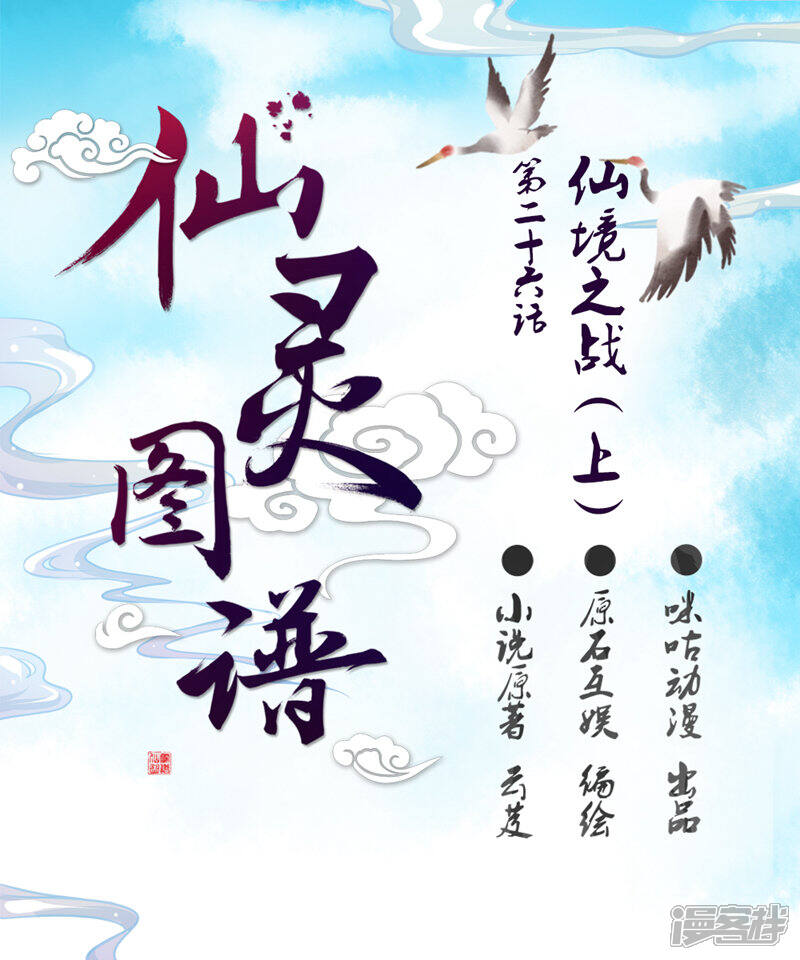 仙灵图谱
仙境之战（上）
第二十六话
咪咕动漫 出品
原石互娱 编绘
小说原著 云芨
漫客栈